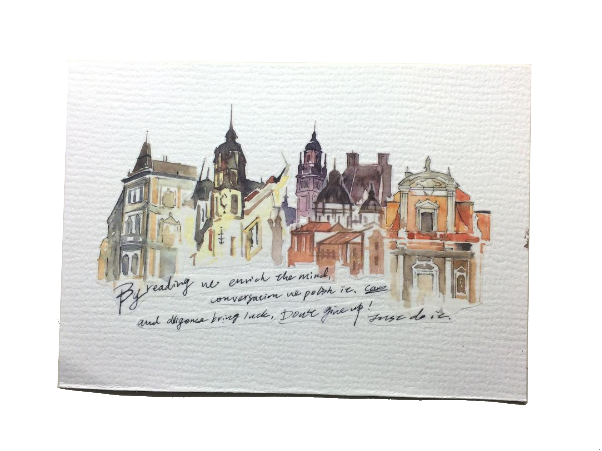 By reading we enrich the mind,
conversation we polish it.
and diligence bring luck, Don't give up! Just do it.